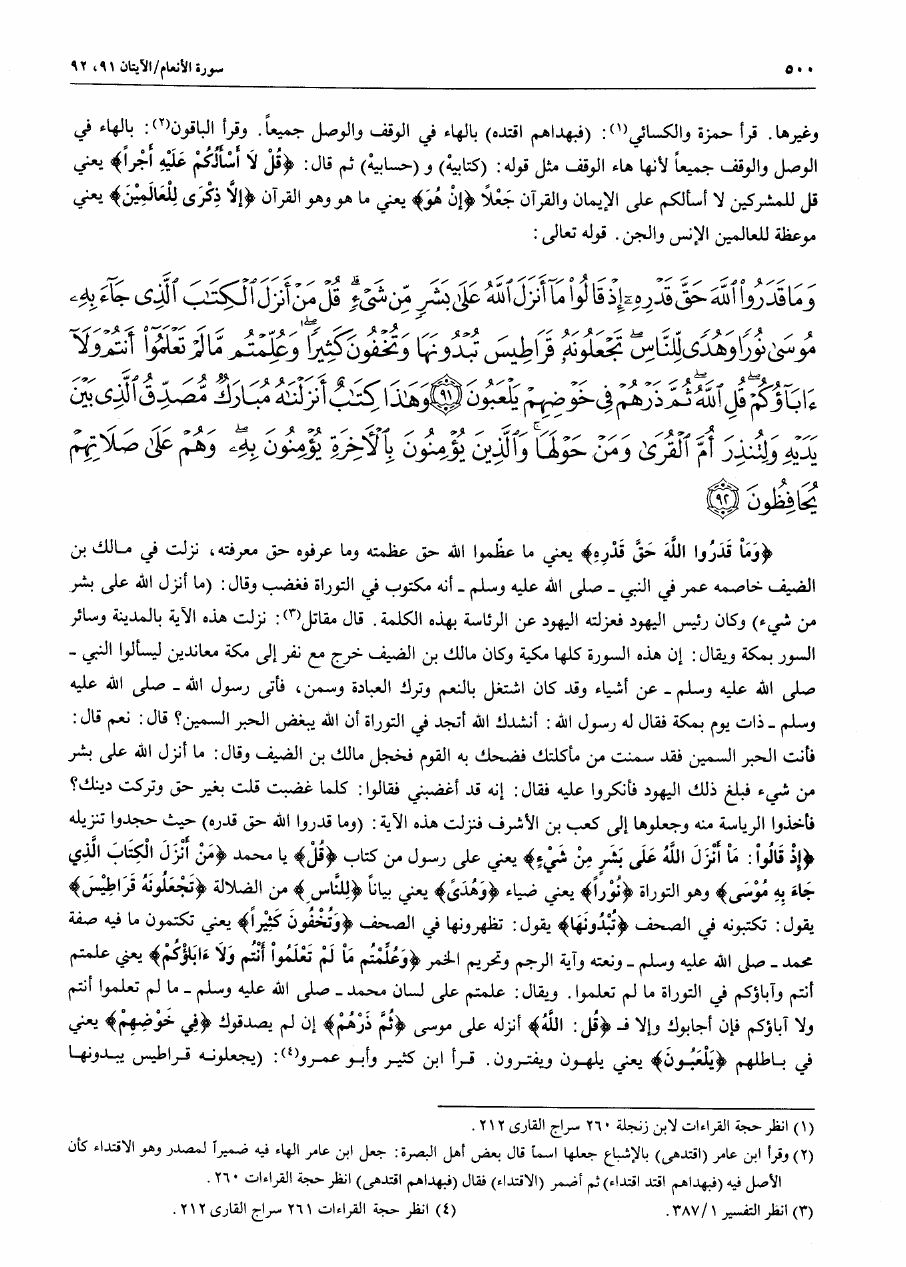 ٥٠٠
سورة الأنعام/الآيتان ٩١، ٩٢
وغيرها. قرأ حمزة والكسائي(١): (فبهداهم اقتده) بالهاء في الوقف والوصل جميعاً. وقرأ الباقون(٢): بالهاء في
الوصل والوقف جميعاً لأنها هاء الوقف مثل قوله: (كتابية) و (حسابية) ثم قال: ﴿قُلْ لَا أَسْأَلُكُمْ عَلَيْهِ أَجْراً﴾ يعني
قل للمشركين لا أسألكم على الإيمان والقرآن جَعْلاً ﴿إِنْ هُوَ﴾ يعني ما هو وهو القرآن ﴿إِلَّا ذِكْرَى لِلْعَالَمِيْنَ﴾ يعني
موعظة للعالمين الإنس والجن. قوله تعالى:
وَمَا قَدَرُوا۟ ٱللَّهَ حَقَّ قَدْرِهِۦٓ إِذْ قَالُوا۟ مَآ أَنزَلَ ٱللَّهُ عَلَىٰ بَشَرٍ مِّن شَىْءٍ ۗ قُلْ مَنْ أَنزَلَ ٱلْكِتَٰبَ ٱلَّذِى جَآءَ بِهِۦ
مُوسَىٰ نُورًا وَهُدًى لِّلنَّاسِ ۖ تَجْعَلُونَهُۥ قَرَاطِيسَ تُبْدُونَهَا وَتُخْفُونَ كَثِيرًا ۖ وَعُلِّمْتُم مَّا لَمْ تَعْلَمُوٓا۟ أَنتُمْ وَلَآ
ءَابَآؤُكُمْ ۖ قُلِ ٱللَّهُ ۖ ثُمَّ ذَرْهُمْ فِى خَوْضِهِمْ يَلْعَبُونَ ﴿٩١﴾ وَهَٰذَا كِتَٰبٌ أَنزَلْنَٰهُ مُبَارَكٌ مُّصَدِّقُ ٱلَّذِى بَيْنَ
يَدَيْهِ وَلِتُنذِرَ أُمَّ ٱلْقُرَىٰ وَمَنْ حَوْلَهَا ۚ وَٱلَّذِينَ يُؤْمِنُونَ بِٱلْءَاخِرَةِ يُؤْمِنُونَ بِهِۦ ۖ وَهُمْ عَلَىٰ صَلَاتِهِمْ
يُحَافِظُونَ ﴿٩٢﴾
﴿وَمَاْ قَدَرُوا اللَّهَ حَقَّ قَدْرِهِ﴾ يعني ما عظّموا الله حق عظمته وما عرفوه حق معرفته، نزلت في مالك بن
الضيف خاصمه عمر في النبي - صلى الله عليه وسلم - أنه مكتوب في التوراة فغضب وقال: (ما أنزل الله على بشر
من شيء) وكان رئيس اليهود فعزلته اليهود عن الرئاسة بهذه الكلمة. قال مقاتل(٣): نزلت هذه الآية بالمدينة وسائر
السور بمكة ويقال: إن هذه السورة كلها مكية وكان مالك بن الضيف خرج مع نفر إلى مكة معاندين ليسألوا النبي -
صلى الله عليه وسلم - عن أشياء وقد كان اشتغل بالنعم وترك العبادة وسمن، فأتى رسول الله - صلى الله عليه
وسلم - ذات يوم بمكة فقال له رسول الله: أنشدك الله أتجد في التوراة أن الله يبغض الحبر السمين؟ قال: نعم قال:
فأنت الحبر السمين فقد سمنت من مأكلتك فضحك به القوم فخجل مالك بن الضيف وقال: ما أنزل الله على بشر
من شيء فبلغ ذلك اليهود فأنكروا عليه فقال: إنه قد أغضبني فقالوا: كلما غضبت قلت بغير حق وتركت دينك؟
فأخذوا الرياسة منه وجعلوها إلى كعب بن الأشرف فنزلت هذه الآية: (وما قدروا الله حق قدره) حيث جحدوا تنزيله
﴿إِذْ قَالُواْ: مَاْ أَنْزَلَ اللَّهُ عَلَى بَشَرٍ مِنْ شَيْءٍ﴾ يعني على رسول من كتاب ﴿قُلْ﴾ يا محمد ﴿مَنْ أَنْزَلَ الْكِتَابَ الَّذِي
جَاءَ بِهِ مُوْسَى﴾ وهو التوراة ﴿نُوْراً﴾ يعني ضياء ﴿وَهُدَىً﴾ يعني بياناً ﴿لِلنَّاسِ﴾ من الضلالة ﴿تَجْعَلُونَهُ قَرَاطِيْسَ﴾
يقول: تكتبونه في الصحف ﴿تُبْدُونَهَا﴾ يقول: تظهرونها في الصحف ﴿وَتُخْفُونَ كَثِيْراً﴾ يعني تكتمون ما فيه صفة
محمد - صلى الله عليه وسلم - ونعته وآية الرجم وتحريم الخمر ﴿وَعُلِّمْتُم مَاْ لَمْ تَعْلَمُواْ أَنْتُم وَلَا ءَابَاؤُكُمْ﴾ يعني علمتم
أنتم وآباؤكم في التوراة ما لم تعلموا. ويقال: علمتم على لسان محمد - صلى الله عليه وسلم - ما لم تعلموا أنتم
ولا آباؤكم فإن أجابوك وإلا فـ ﴿قُلْ: اللَّهُ﴾ أنزله على موسى ﴿ثُمَّ ذَرْهُمْ﴾ إن لم يصدقوك ﴿فِي خَوْضِهِمْ﴾ يعني
في باطلهم ﴿يَلْعَبُونَ﴾ يعني يلهون ويفترون. قرأ ابن كثير وأبو عمرو(٤): (يجعلونه قراطيس يبدونها
(١) انظر حجة القراءات لابن زنجلة ٢٦٠ سراج القارى ٢١٢.
(٢) وقرأ ابن عامر (اقتدهى) بالإشباع جعلها اسماً قال بعض أهل البصرة: جعل ابن عامر الهاء فيه ضميراً لمصدر وهو الاقتداء كأن
الأصل فيه (فبهداهم اقتد اقتداء) ثم أضمر (الاقتداء) فقال (فبهداهم اقتدهى) انظر حجة القراءات ٢٦٠.
(٣) انظر التفسير ١/ ٣٨٧. (٤) انظر حجة القراءات ٢٦١ سراج القارى ٢١٢.